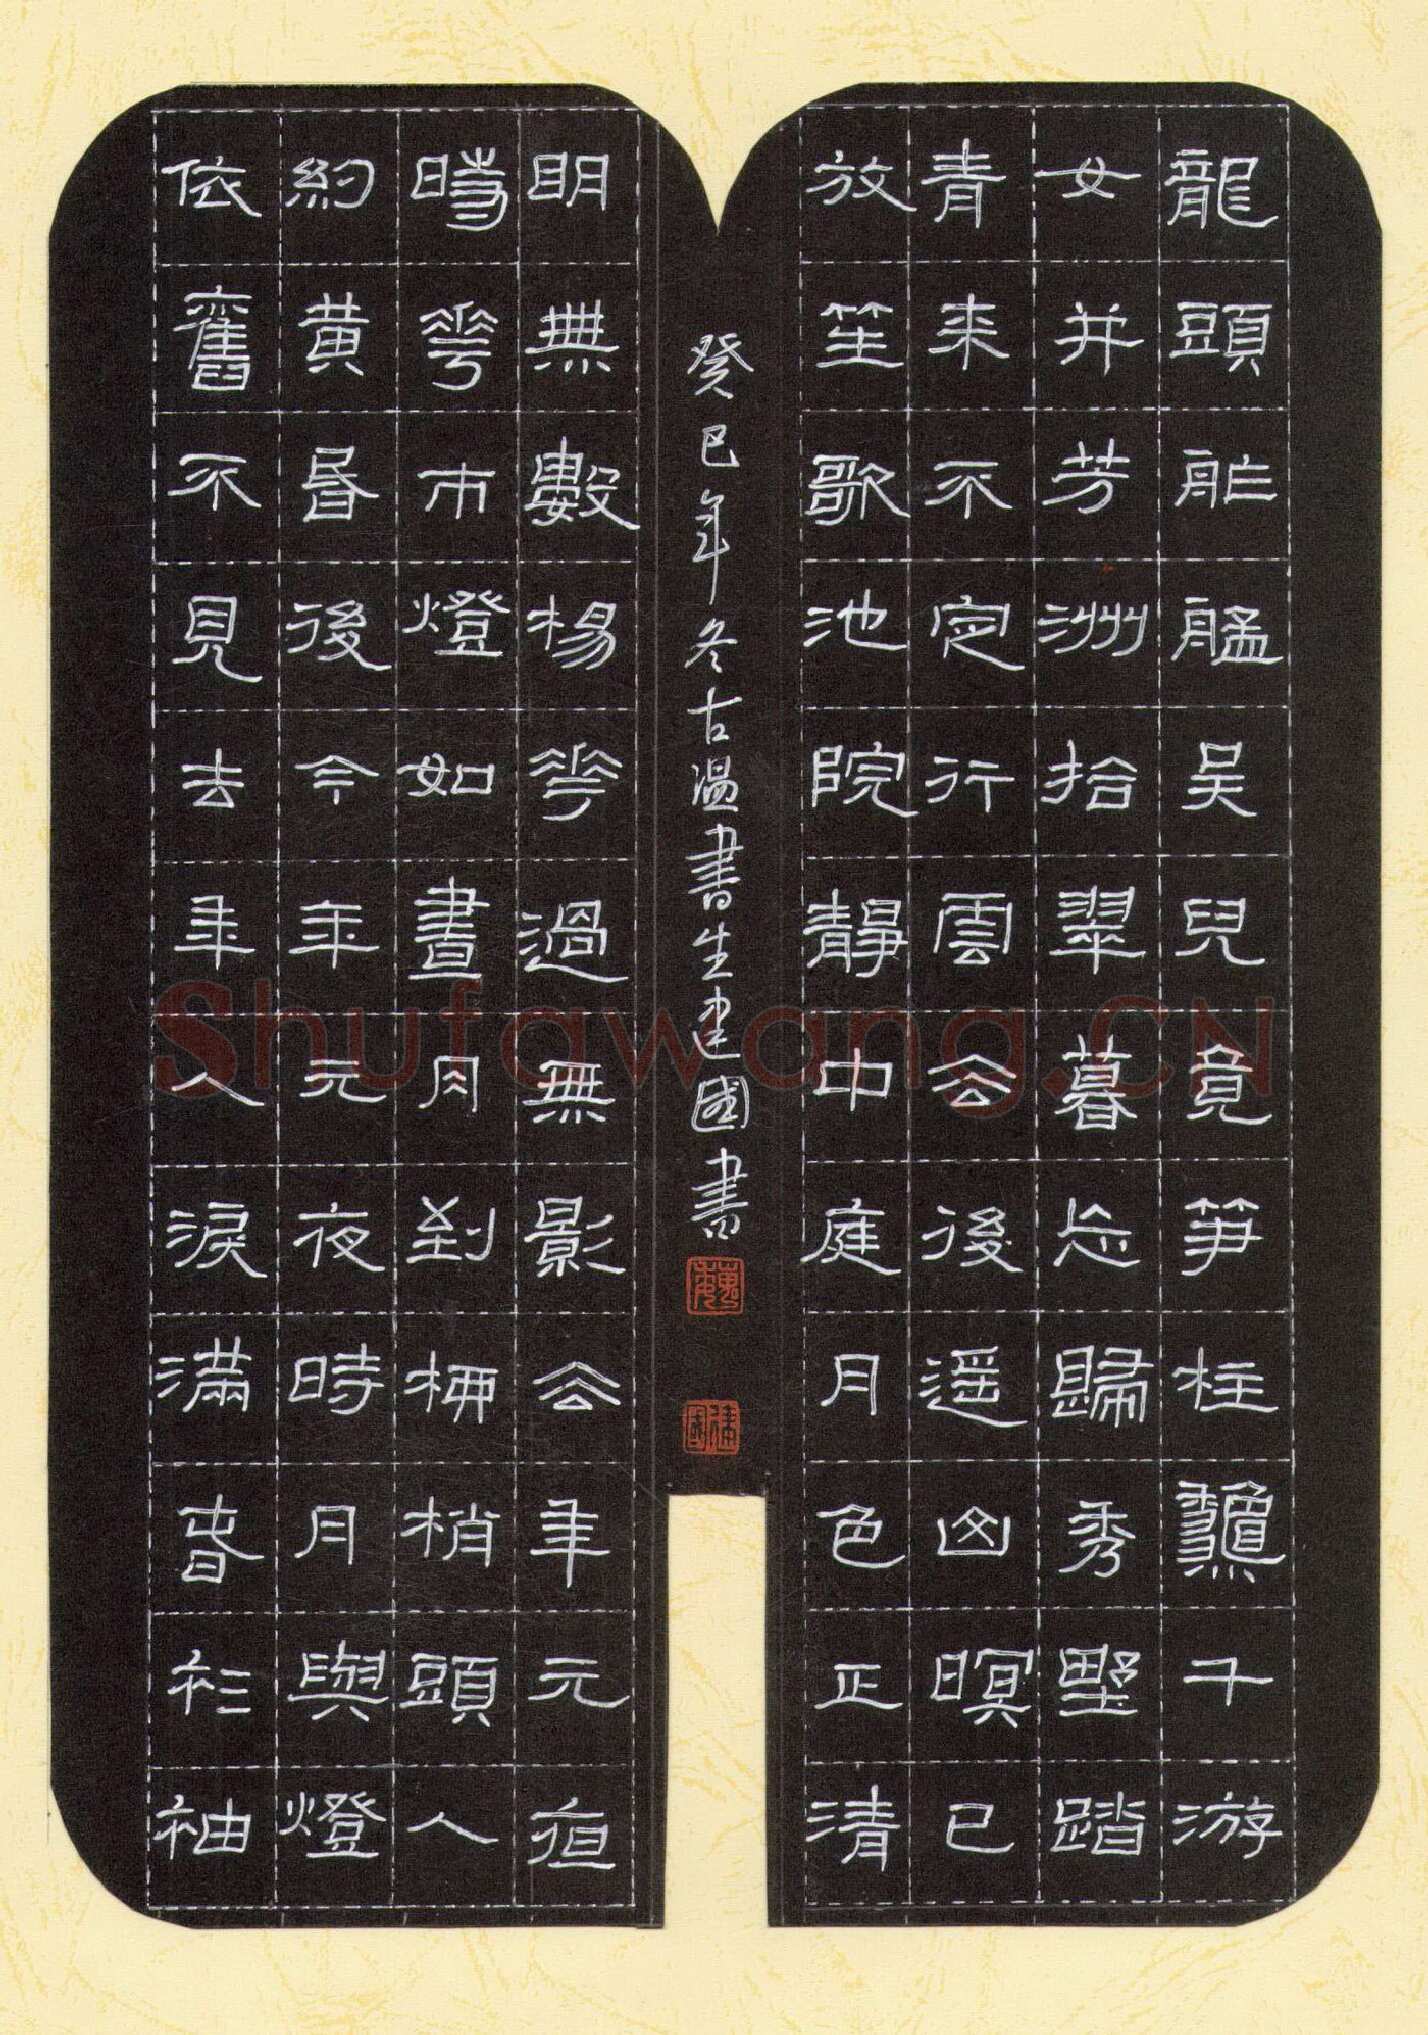 龍頭舴艋吳兒竟笋柱龝千游
女并芳洲拾翠暮忘歸秀墅踏
青来不定行雲去後遥山暝已
放笙歌池院靜中庭月色正清
癸巳年冬古温書生建國書
明無數楊花過無影去年元夜
時花市燈如晝月到柳梢頭人
約黃昏後今年元夜時月與燈
依舊不見去年人淚滿春衫袖
Shufawang.CN